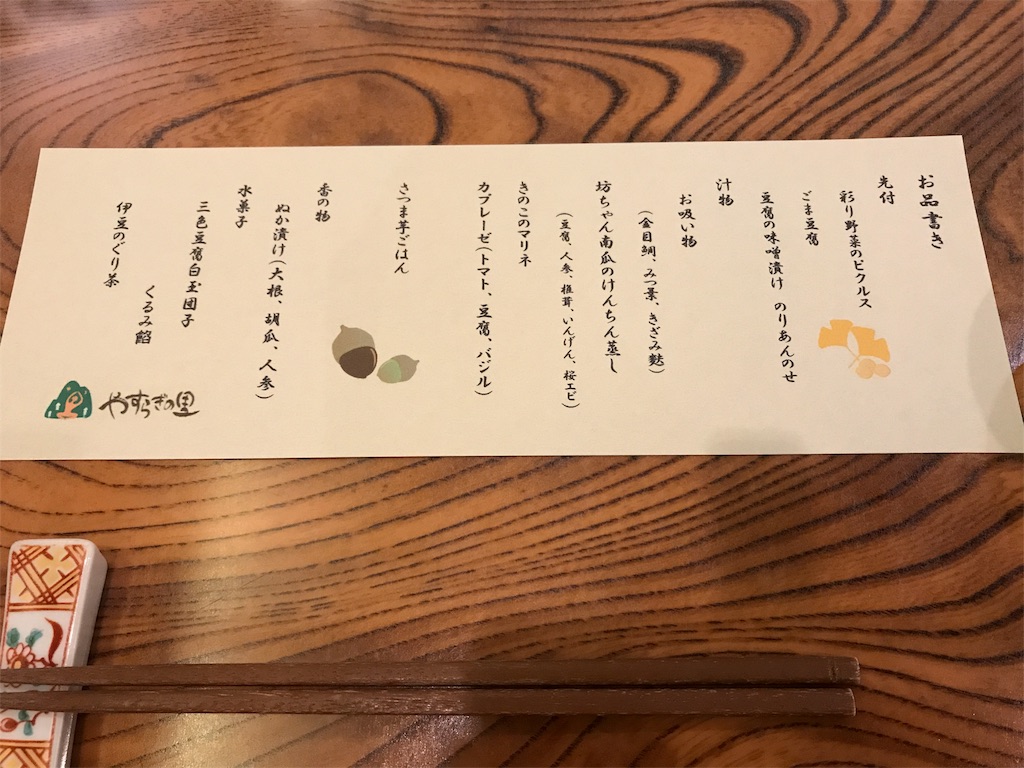 お品書き
先付
彩り野菜のピクルス
ごま豆腐
豆腐の味噌漬け　のりあんのせ
汁物
お吸い物
（金目鯛、みつ葉、きざみ麩）
坊ちゃん南瓜のけんちん蒸し
（豆腐、人参、椎茸、いんげん、桜エビ）
きのこのマリネ
カプレーゼ（トマト、豆腐、バジル）
さつま芋ごはん
香の物
ぬか漬け（大根、胡瓜、人参）
水菓子
三色豆腐白玉団子
くるみ餡
伊豆のぐり茶
やすらぎの里